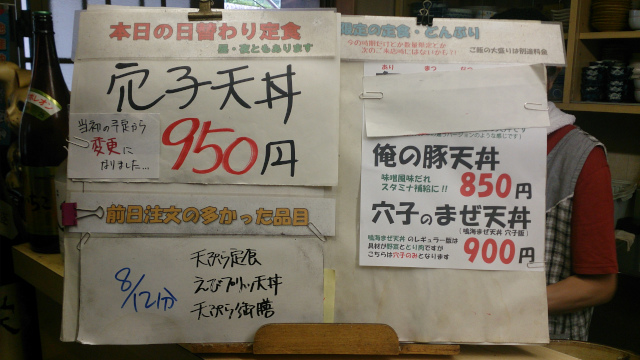 本日の日替わり定食
昼・夜ともあります
穴子天丼
当初の予定から
変更に
なりました...
950円
前日注文の多かった品目
8/12分
天ぷら定食
えびプリッ天丼
天ぷら御膳
限定の定食・どんぶり
ご飯の大盛りは別途料金
俺の豚天丼
味噌風味だれ
スタミナ補給に!!
850円
穴子のまぜ天丼
(鳴海まぜ天丼 穴子版)
鳴海まぜ天丼 のレギュラー版は
具材が野菜ととり肉ですが
こちらは穴子のみとなります
900円